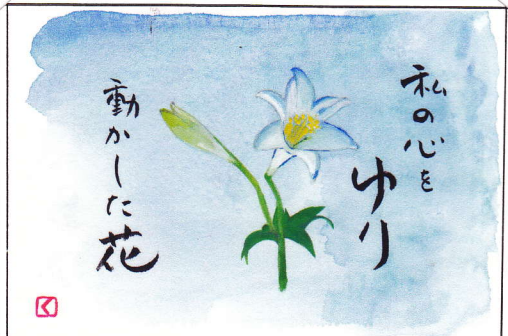 私の心を
ゆり
動かした花
く